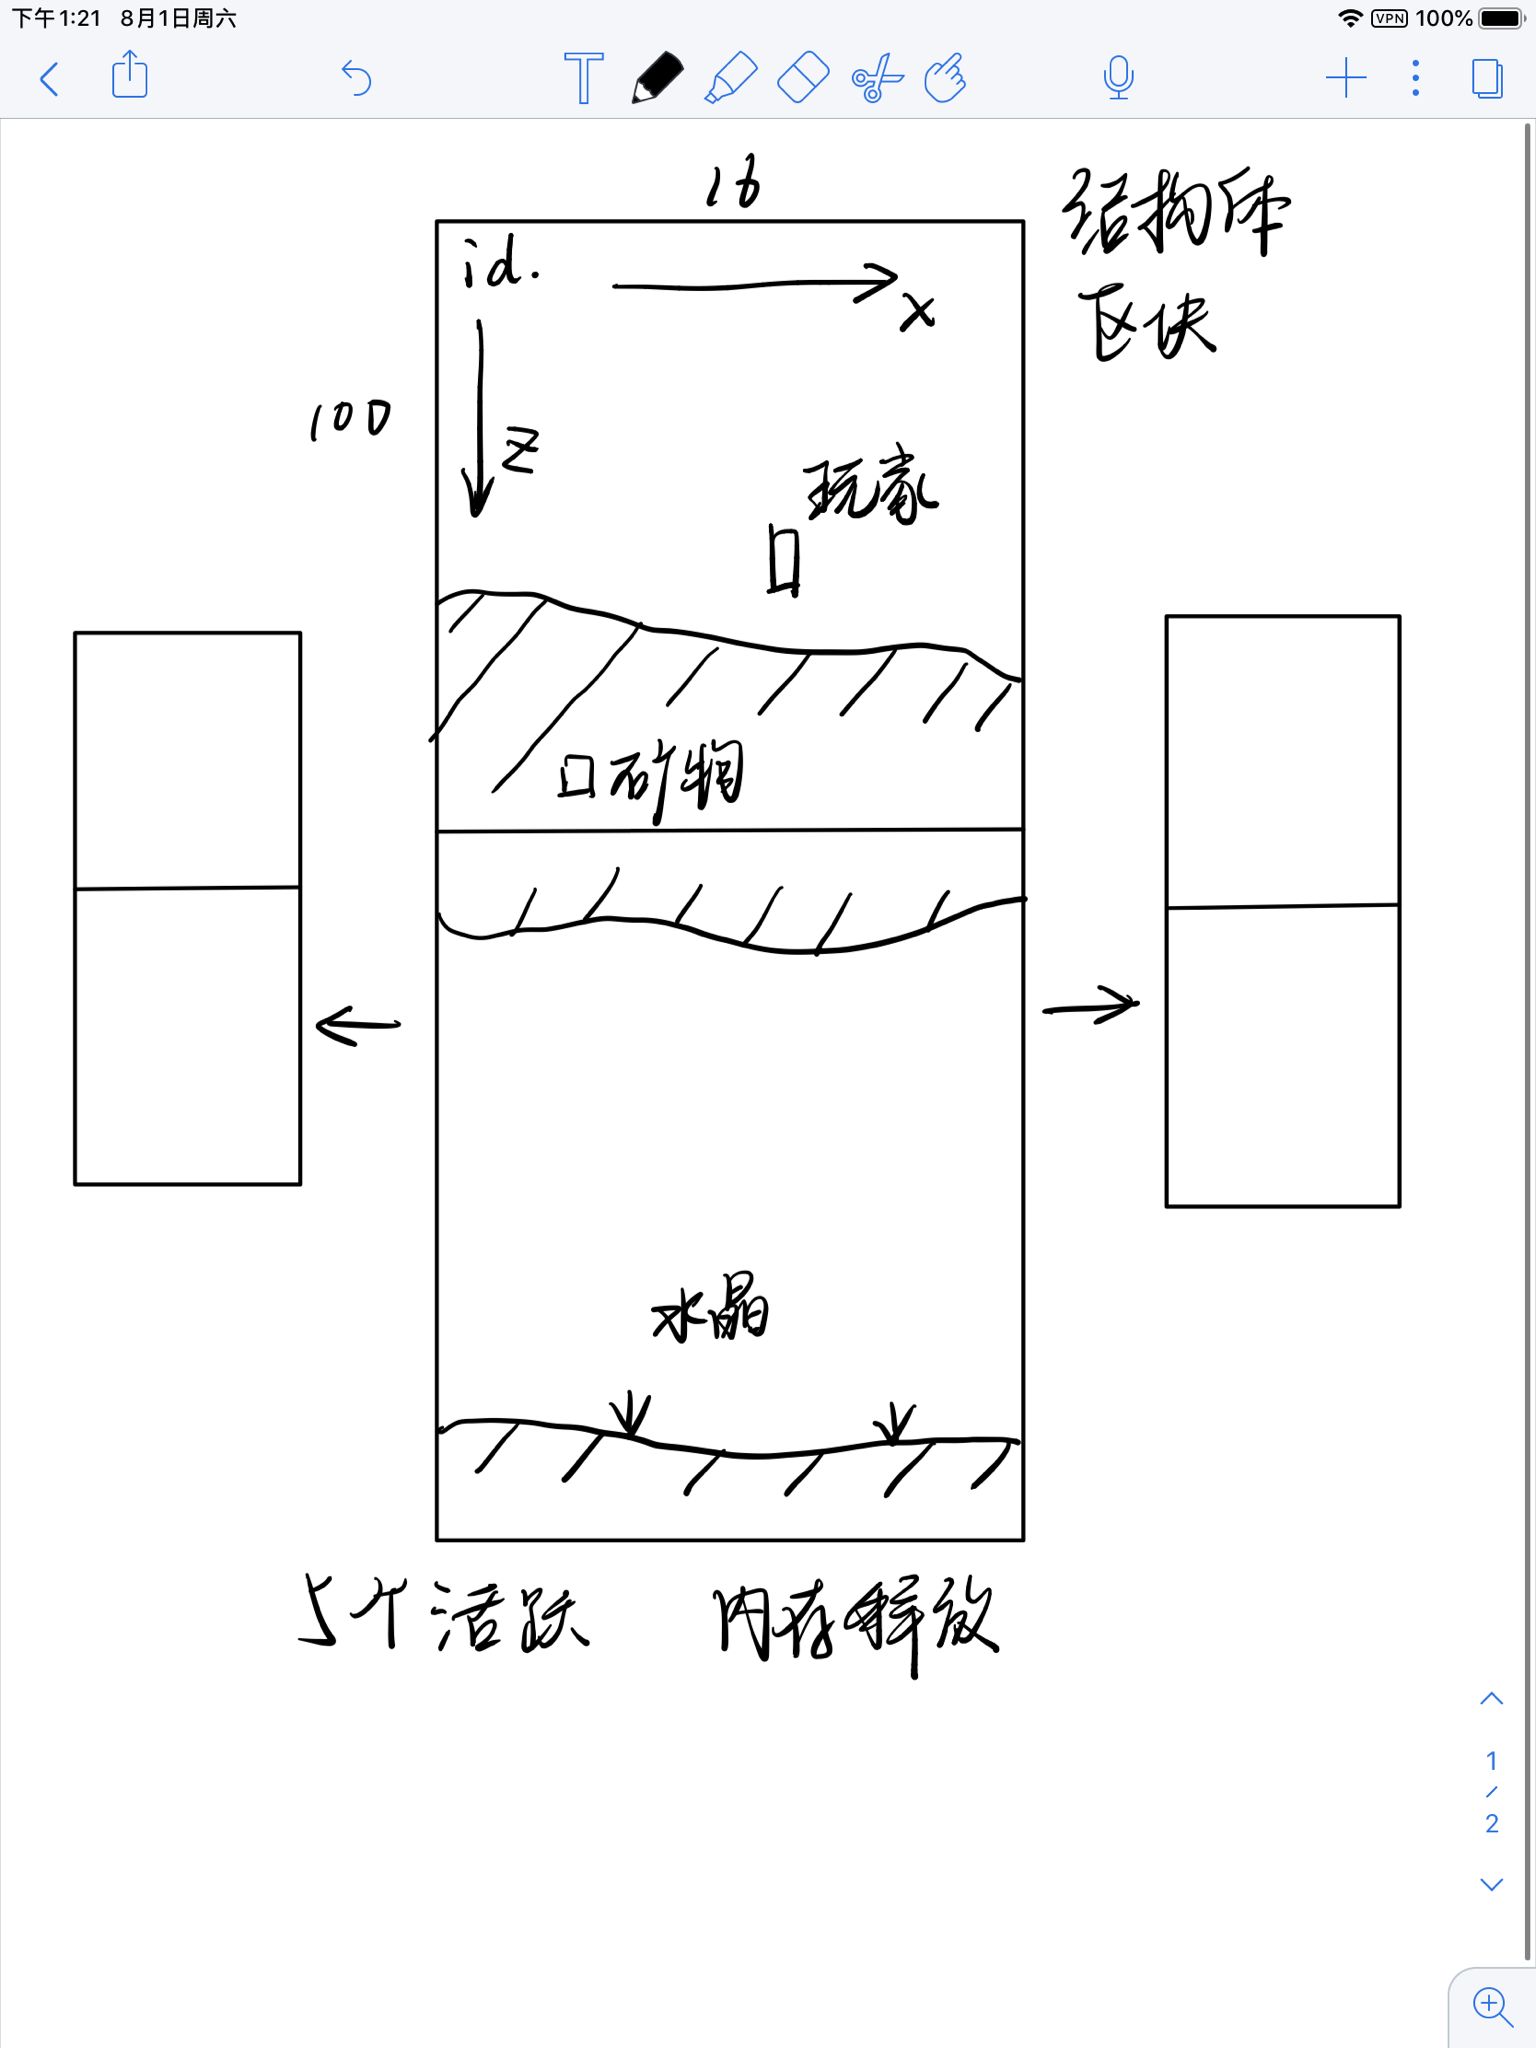 下午1:21 8月1日周六
VPN 100%
T
16
结构体
区块
id.
x
100
z
玩家
矿物
水晶
5个活跃 内存释放
1
/
2